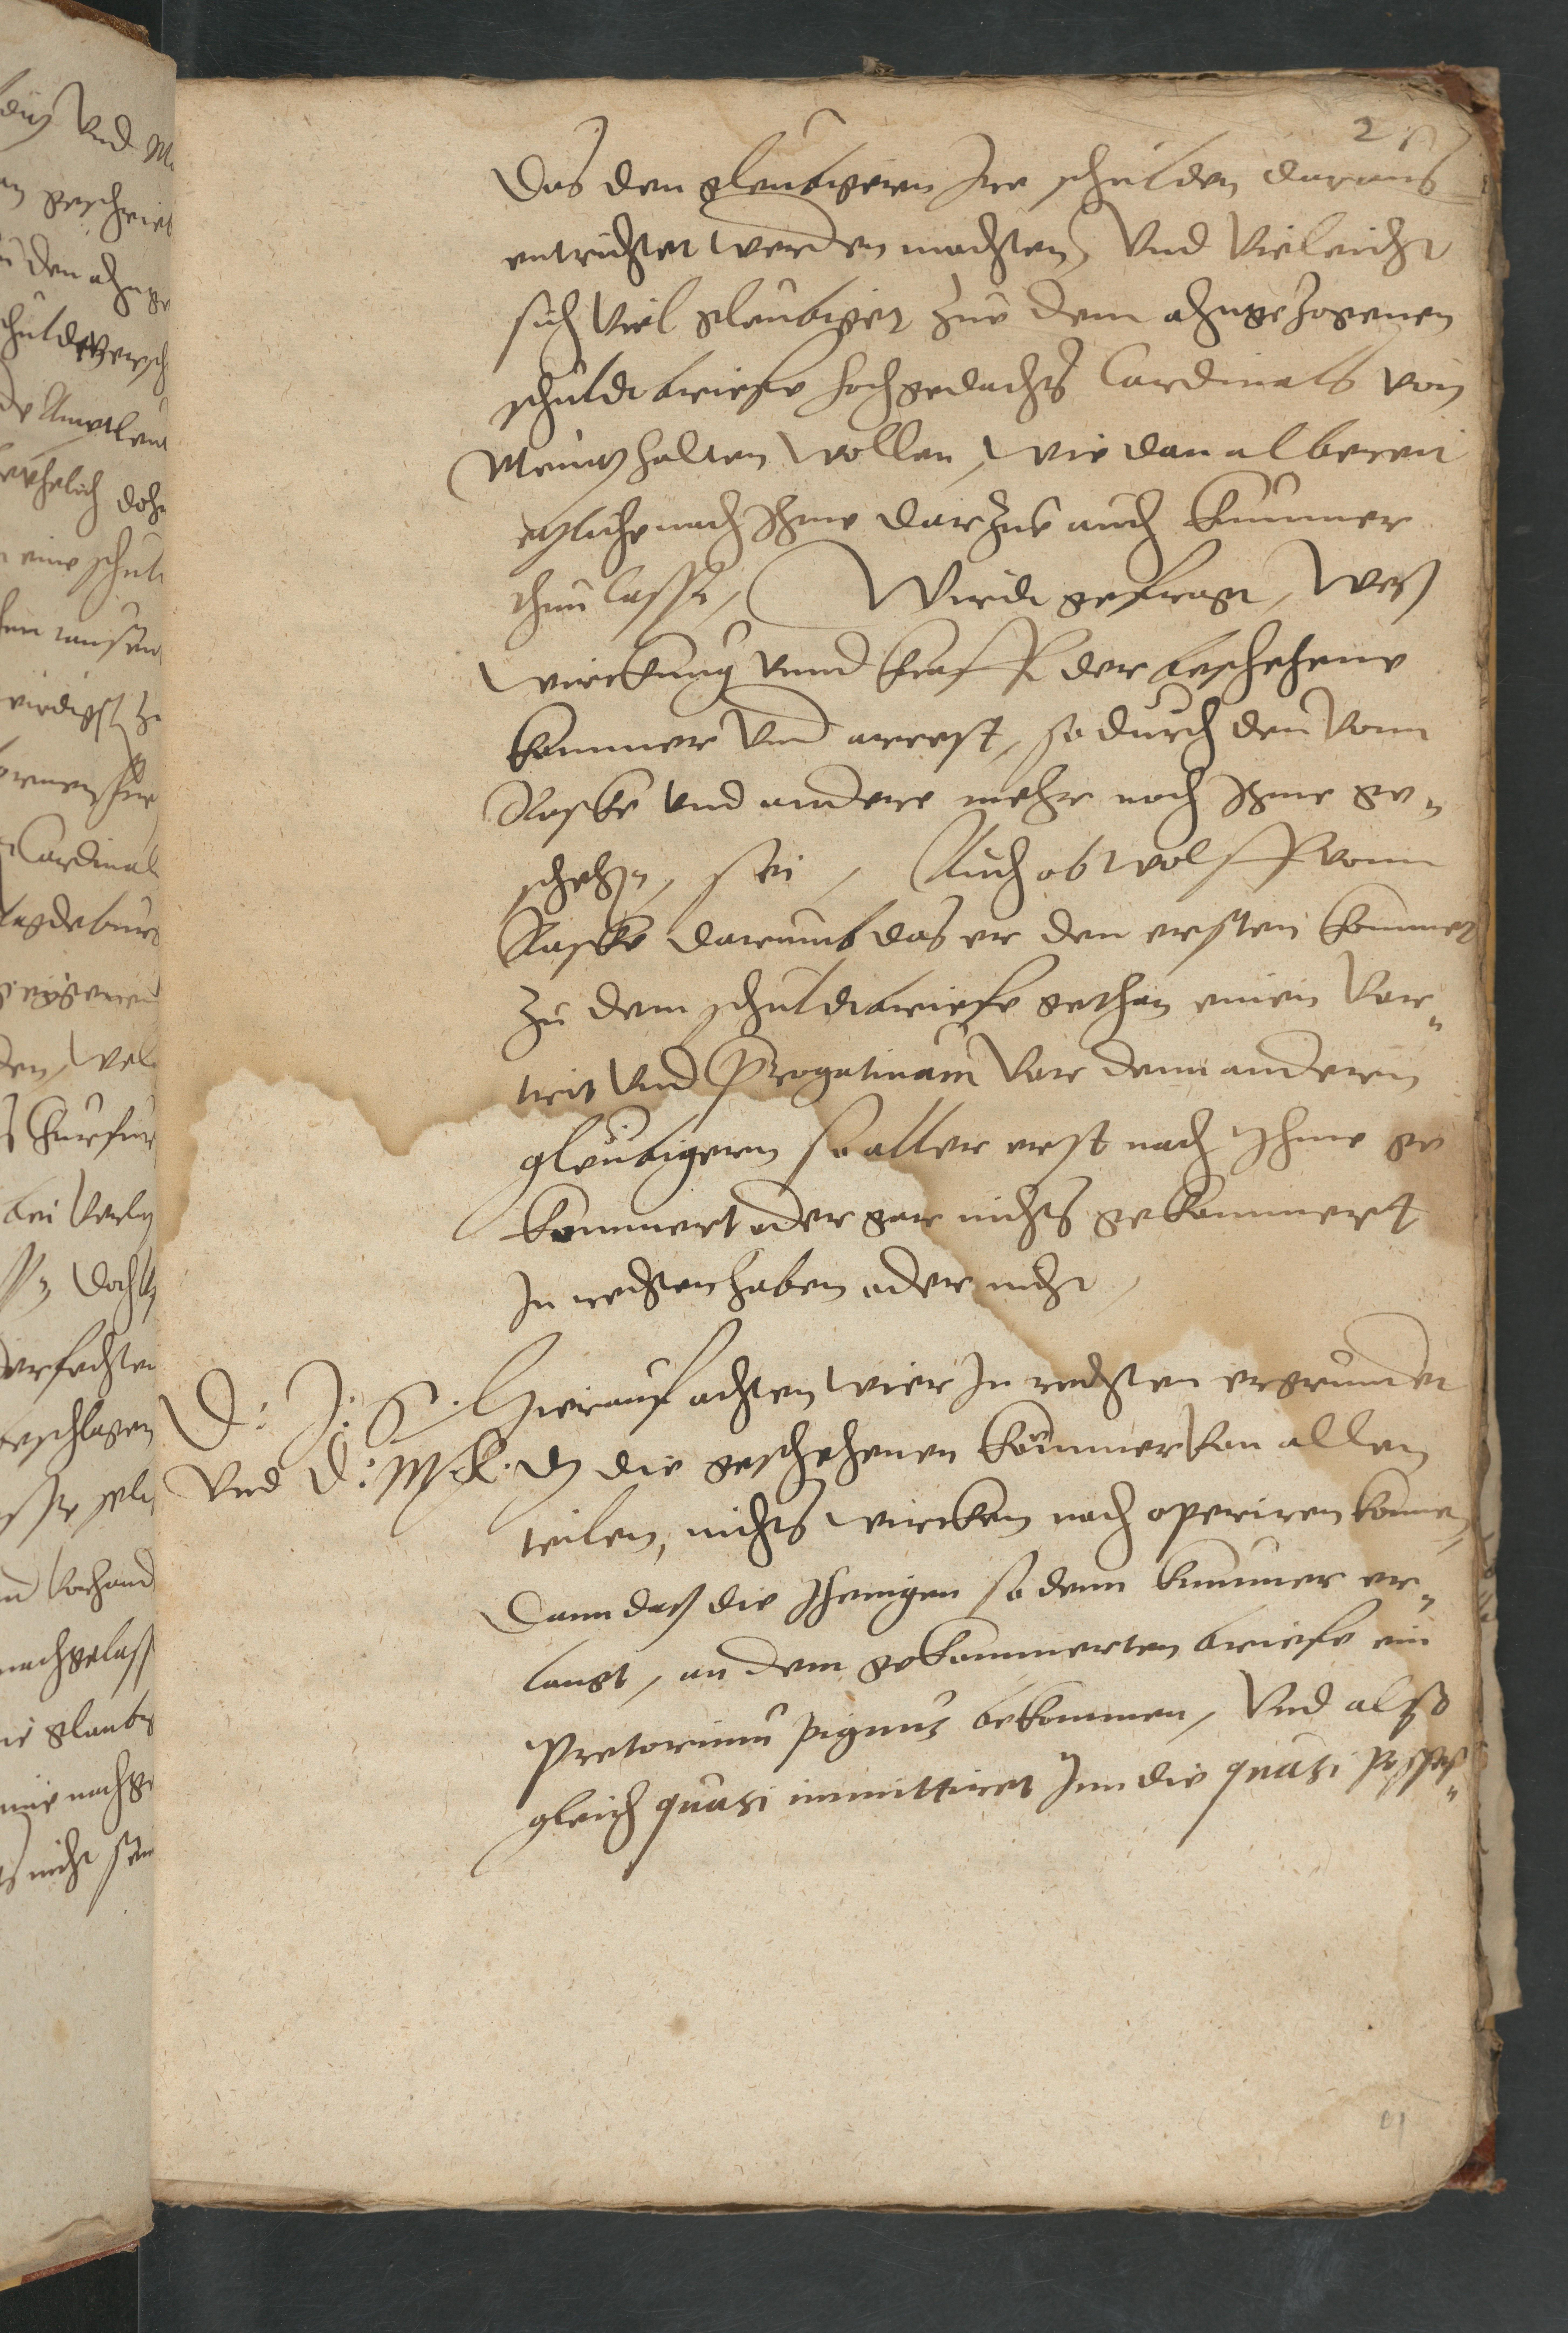 2
Das den gleubigern Ire schulden daraus
entrichtet werden mochten, Vnd Vieleicht
sich Viel gleubiger zue dem ahngezogenen
schuldtbriefe hochgedachts Cardinals von
Meintz halten wollen, wie dan albereit
etzliche nach Ihme darzue auch kummer
thun lasse, Wirdt gefragt, Wes
wirckung vnnd krafft der beschehene
kommer Vnd arrest, so durch den Vonn
Vnd andere mehr noch Ihme ge„
schehen, sei, Auch ob wolff Vonn
darumb das er den ersten kommer
zu dem schuldtbriefe gethan einen Vor„
trit Vnd Prerogatinam Vor denn anderen
gleubigern so aller erst nach Ihme ge
kommert oder gar nichts gekommert
In rechten haben oder nicht,
D: J: S. Hierauf achten wier In rechten ergrundet
Vnd D: M. K. Das die geschehenen kommer Von allen
teilen, nichts wircken noch operiren konnen,
Dann das die Ihenigen so denn kummer er„
langt, an dem gekommerten briefe ein
Pretorium pignus bekommen, Vnd also
gleich quasi inmittiret Inn die quasi Posses„